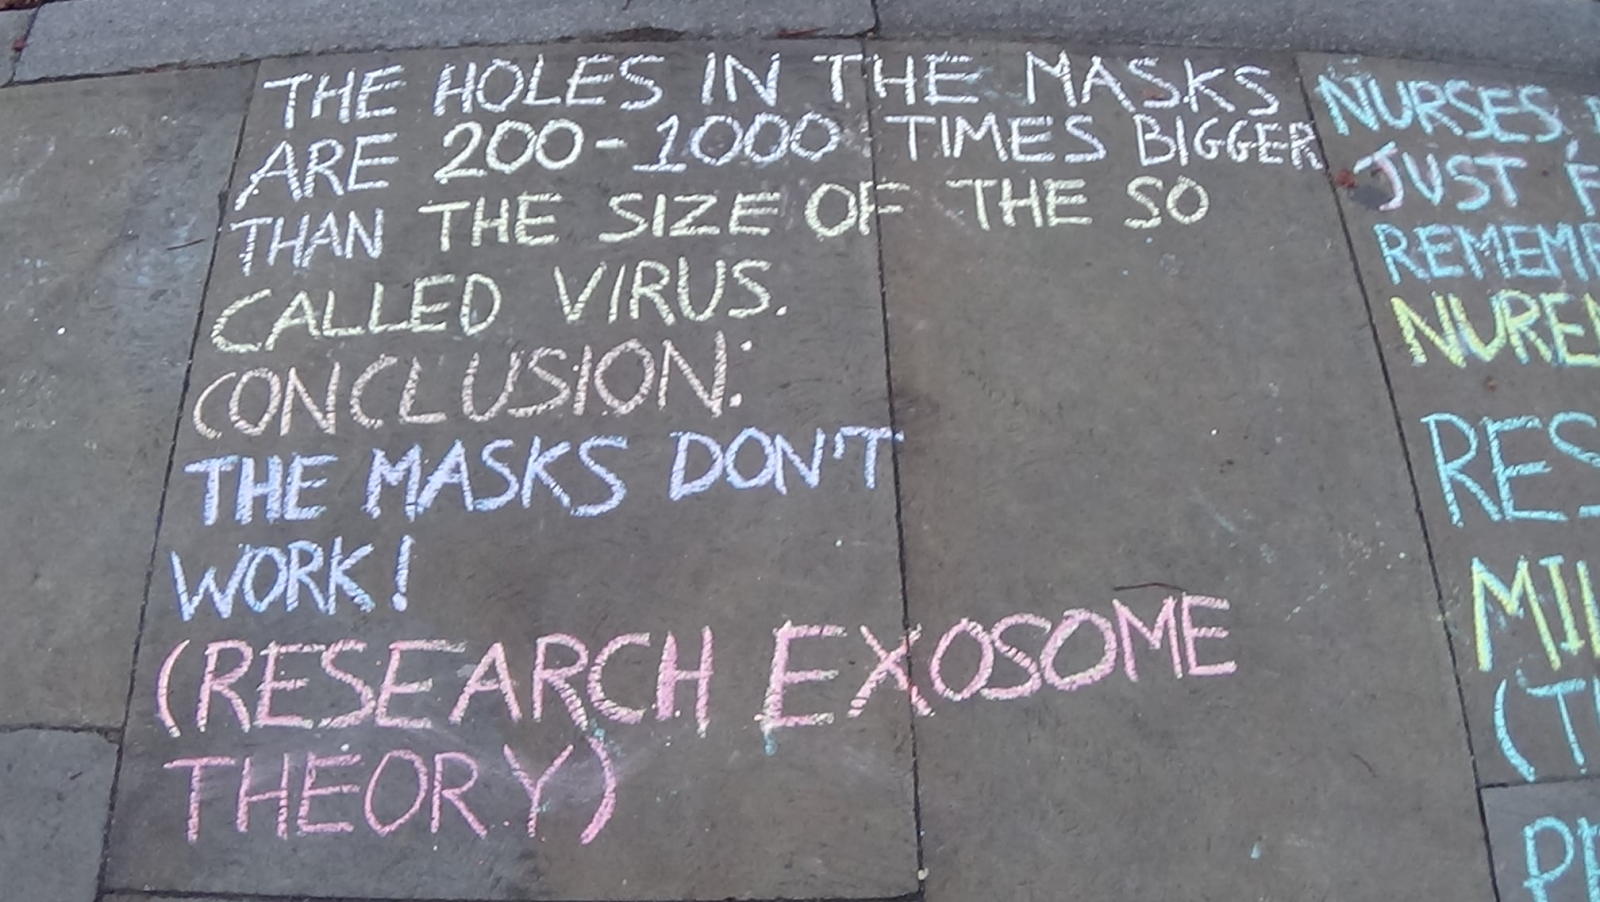 THE HOLES IN THE MASKS
ARE 200-1000 TIMES BIGGER
THAN THE SIZE OF THE SO
CALLED VIRUS.
CONCLUSION:
THE MASKS DON'T
WORK!
(RESEARCH EXOSOME
THEORY)
NURSES,
JUST